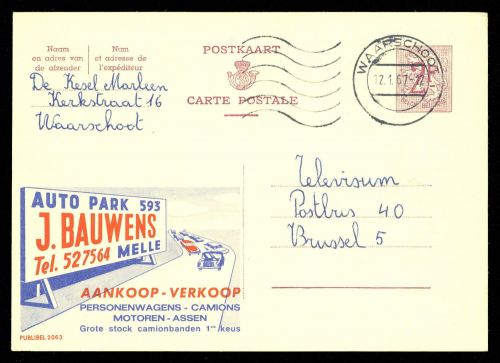 Naam
en adres van
de afzender
Nom
et adresse de
l'expéditeur
POSTKAART
CARTE POSTALE
WAARSCHOOT
12.1.67
De Kesel Marleen
Kerkstraat 16
Waarschoot
Televisum
Postbus 40
Brussel 5
AUTO PARK 593
J. BAUWENS
Tel. 527564 MELLE
AANKOOP - VERKOOP
PERSONENWAGENS - CAMIONS
MOTOREN - ASSEN
Grote stock camionbanden 1ste keus
PUBLIBEL 2063